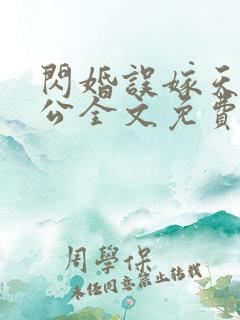 閃婚誤嫁天
公全文免費
周學保
未経同意禁止转載